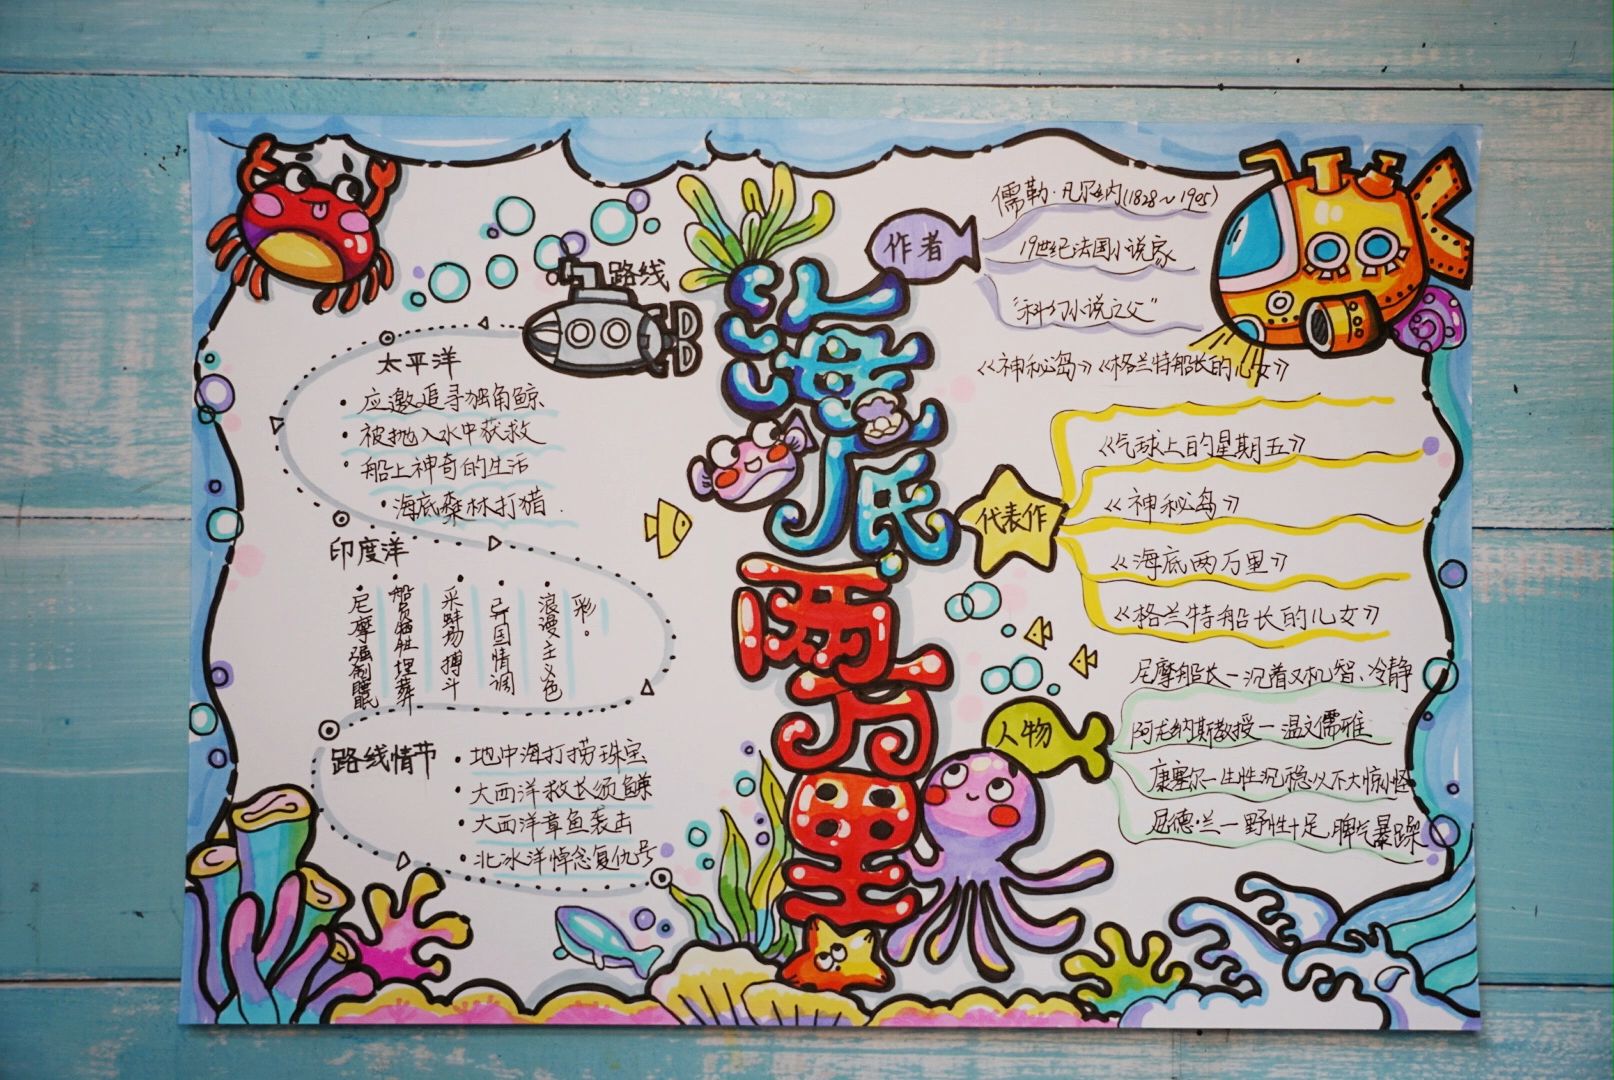 海底两万里
路线
太平洋
应邀追寻独角鲸
被抛入水中获救
船上神奇的生活
海底森林打猎.
印度洋
尼摩强制眠
船员牺牲埋葬
采蚌场搏斗
异国情调
浪漫主义色
彩。
路线情节
地中海打捞珠宝
大西洋救长须鲸
大西洋章鱼袭击
北冰洋悼念复仇号
作者
儒勒·凡尔纳(1828~1905)
19世纪法国小说家
“科幻小说之父”
《神秘岛》《格兰特船长的儿女》
代表作
《气球上的星期五》
《神秘岛》
《海底两万里》
《格兰特船长的儿女》
人物
尼摩船长—沉着又机智、冷静
阿龙纳斯教授—温文儒雅
康塞尔—生性沉稳从不大惊小怪
尼德·兰—野性十足,脾气暴躁